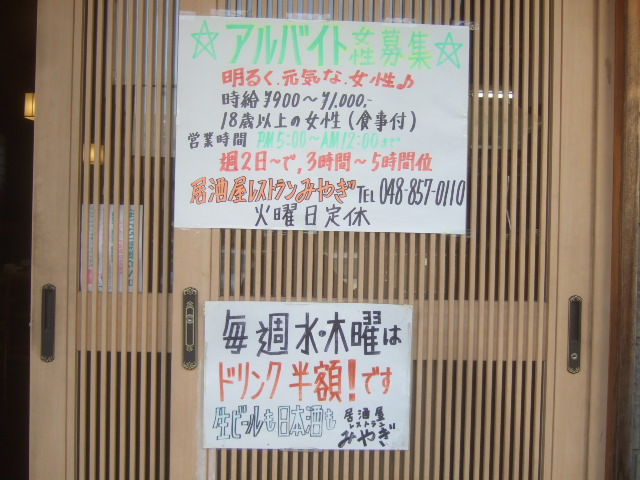 ☆アルバイト女性募集☆
明るく.元気な.女性♪
時給 ¥900～¥1,000,-
18歳以上の女性(食事付)
営業時間 PM5:00～AM12:00まで
週2日～で,3時間～5時間位
居酒屋レストランみやぎ TEL 048-857-0110
火曜日定休
毎週水・木曜は
ドリンク半額!です
生ビールも日本酒も
居酒屋
レストラン
みやぎ